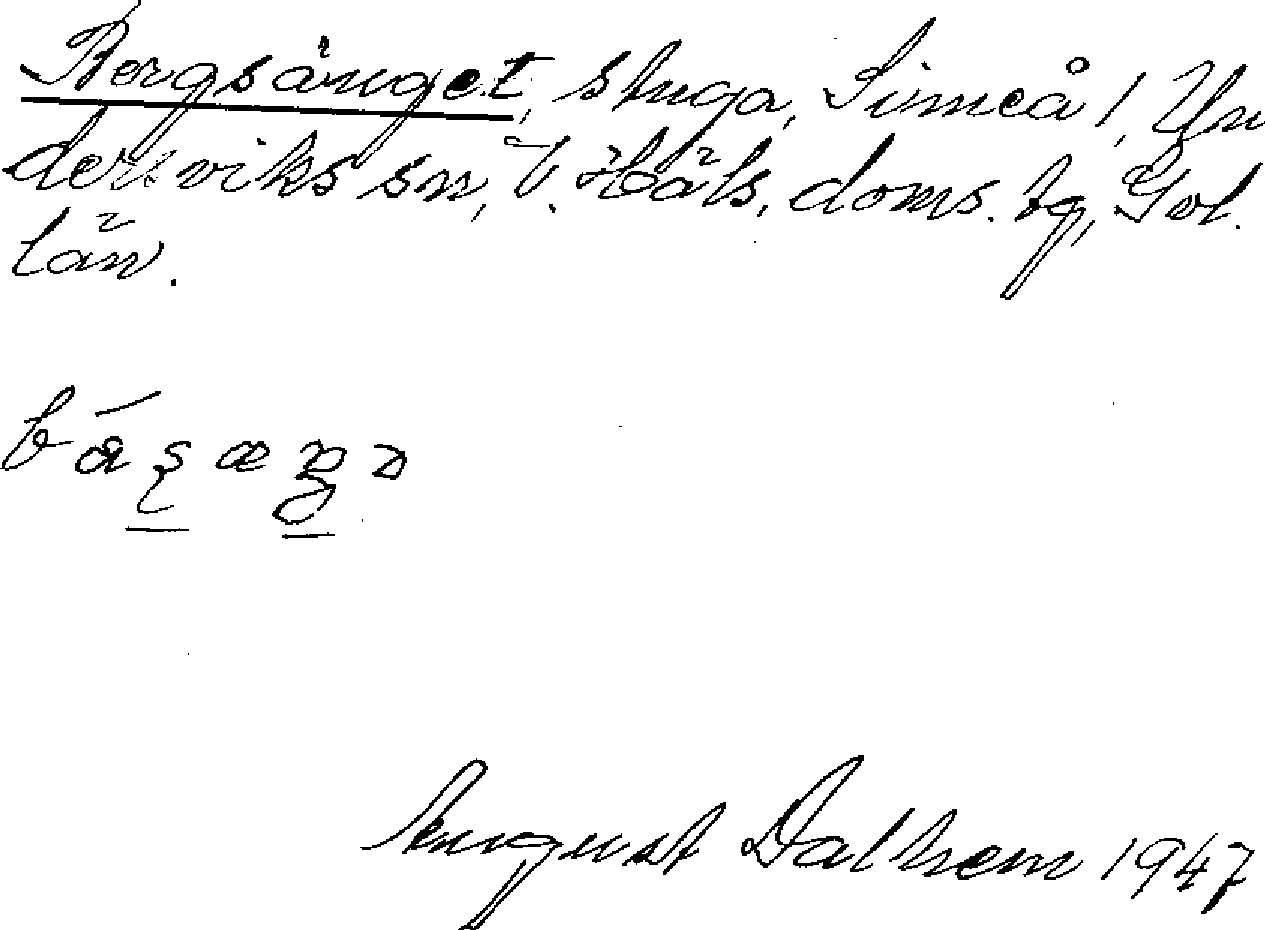 Bergsänget, stuga, Simeå 1, Un
dersviks sn, V. Häls. doms. tg, Gvl.
län.
August Dalhem 1947